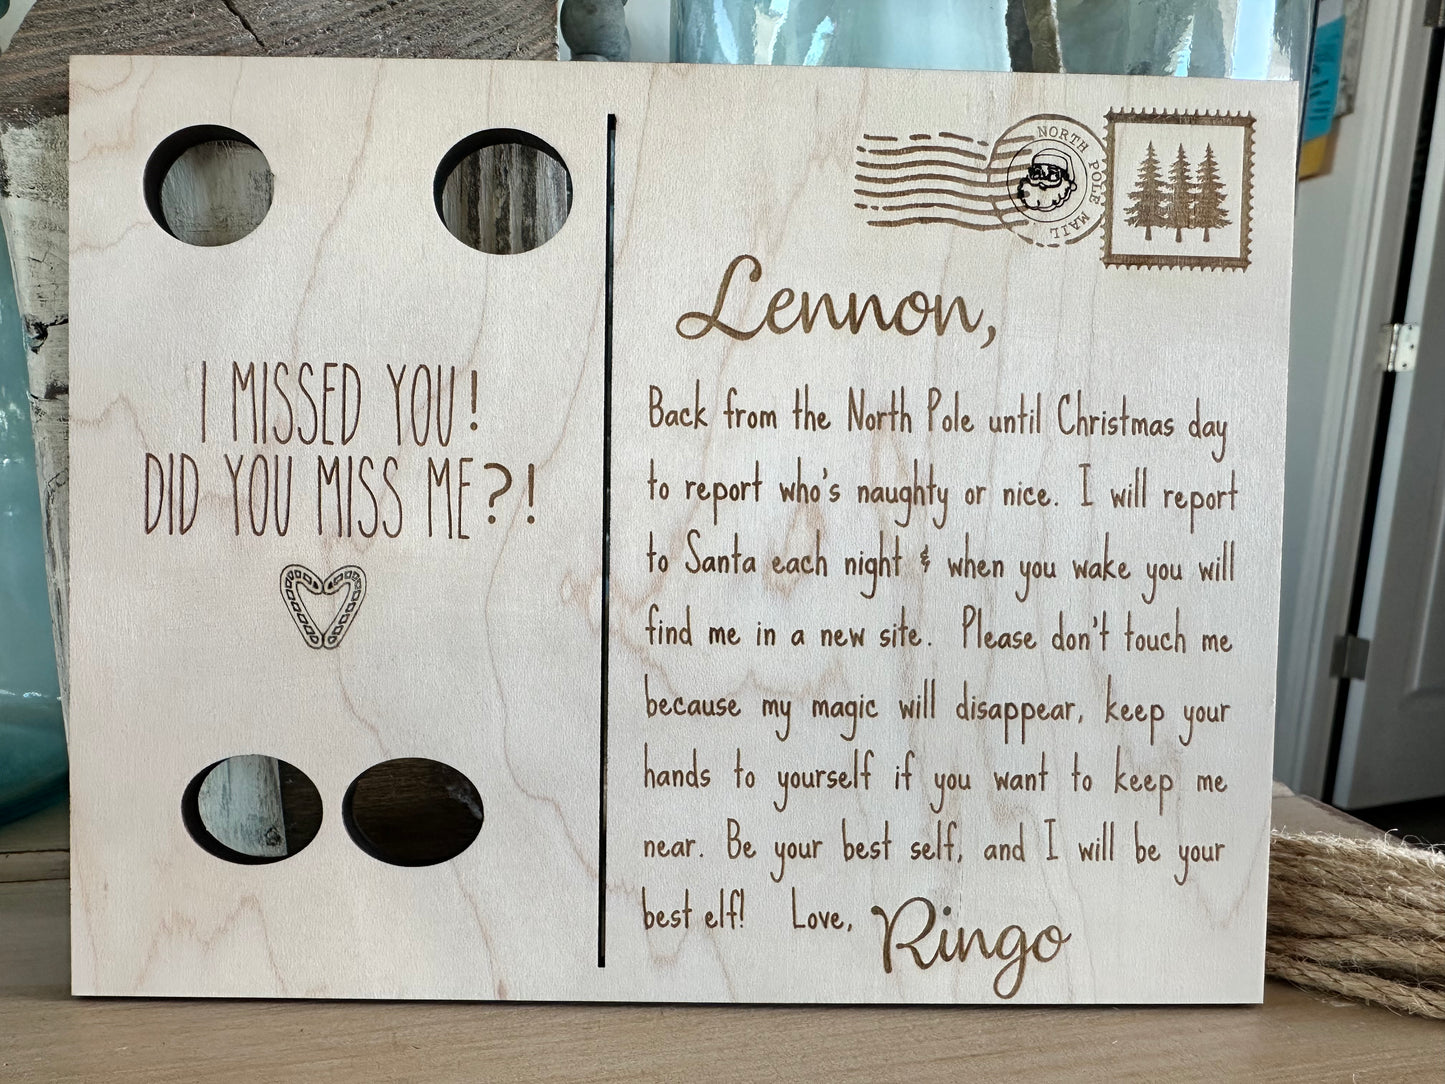 I MISSED YOU!
DID YOU MISS ME?!
NORTH POLE MAIL
Lennon,
Back from the North Pole until Christmas day
to report who's naughty or nice. I will report
to Santa each night & when you wake you will
find me in a new site. Please don't touch me
because my magic will disappear, keep your
hands to yourself if you want to keep me
near. Be your best self, and I will be your
best elf! Love, Ringo